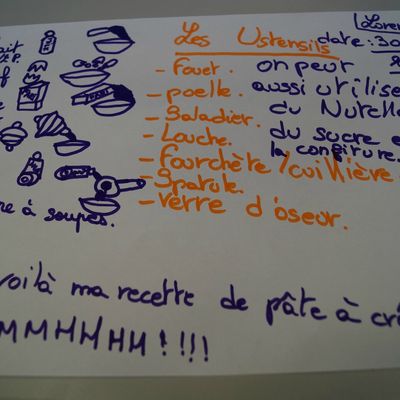 Loren
date: 30
Les Ustensils
- Fouet.
- poelle.
- Saladier.
- Louche.
- Fourchête / cuillière
- Spatule.
- verre d'oseur.
on peur
aussi utilise
du Nutella
du sucre e
la confiture.
ait
f
re à soupes.
voilà ma recette de pâte à crê
MMMHHHH!!!!